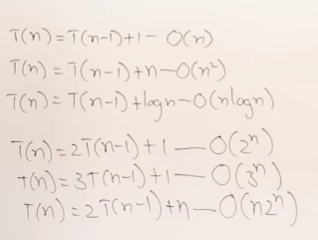 T(n)=T(n-1)+1- O(n)
T(n)=T(n-1)+n-O(n²)
T(n)=T(n-1)+logn-O(nlogn)
T(n)=2T(n-1)+1—O(2ⁿ)
T(n)=3T(n-1)+1—O(3ⁿ)
T(n)=2T(n-1)+n—O(n2ⁿ)